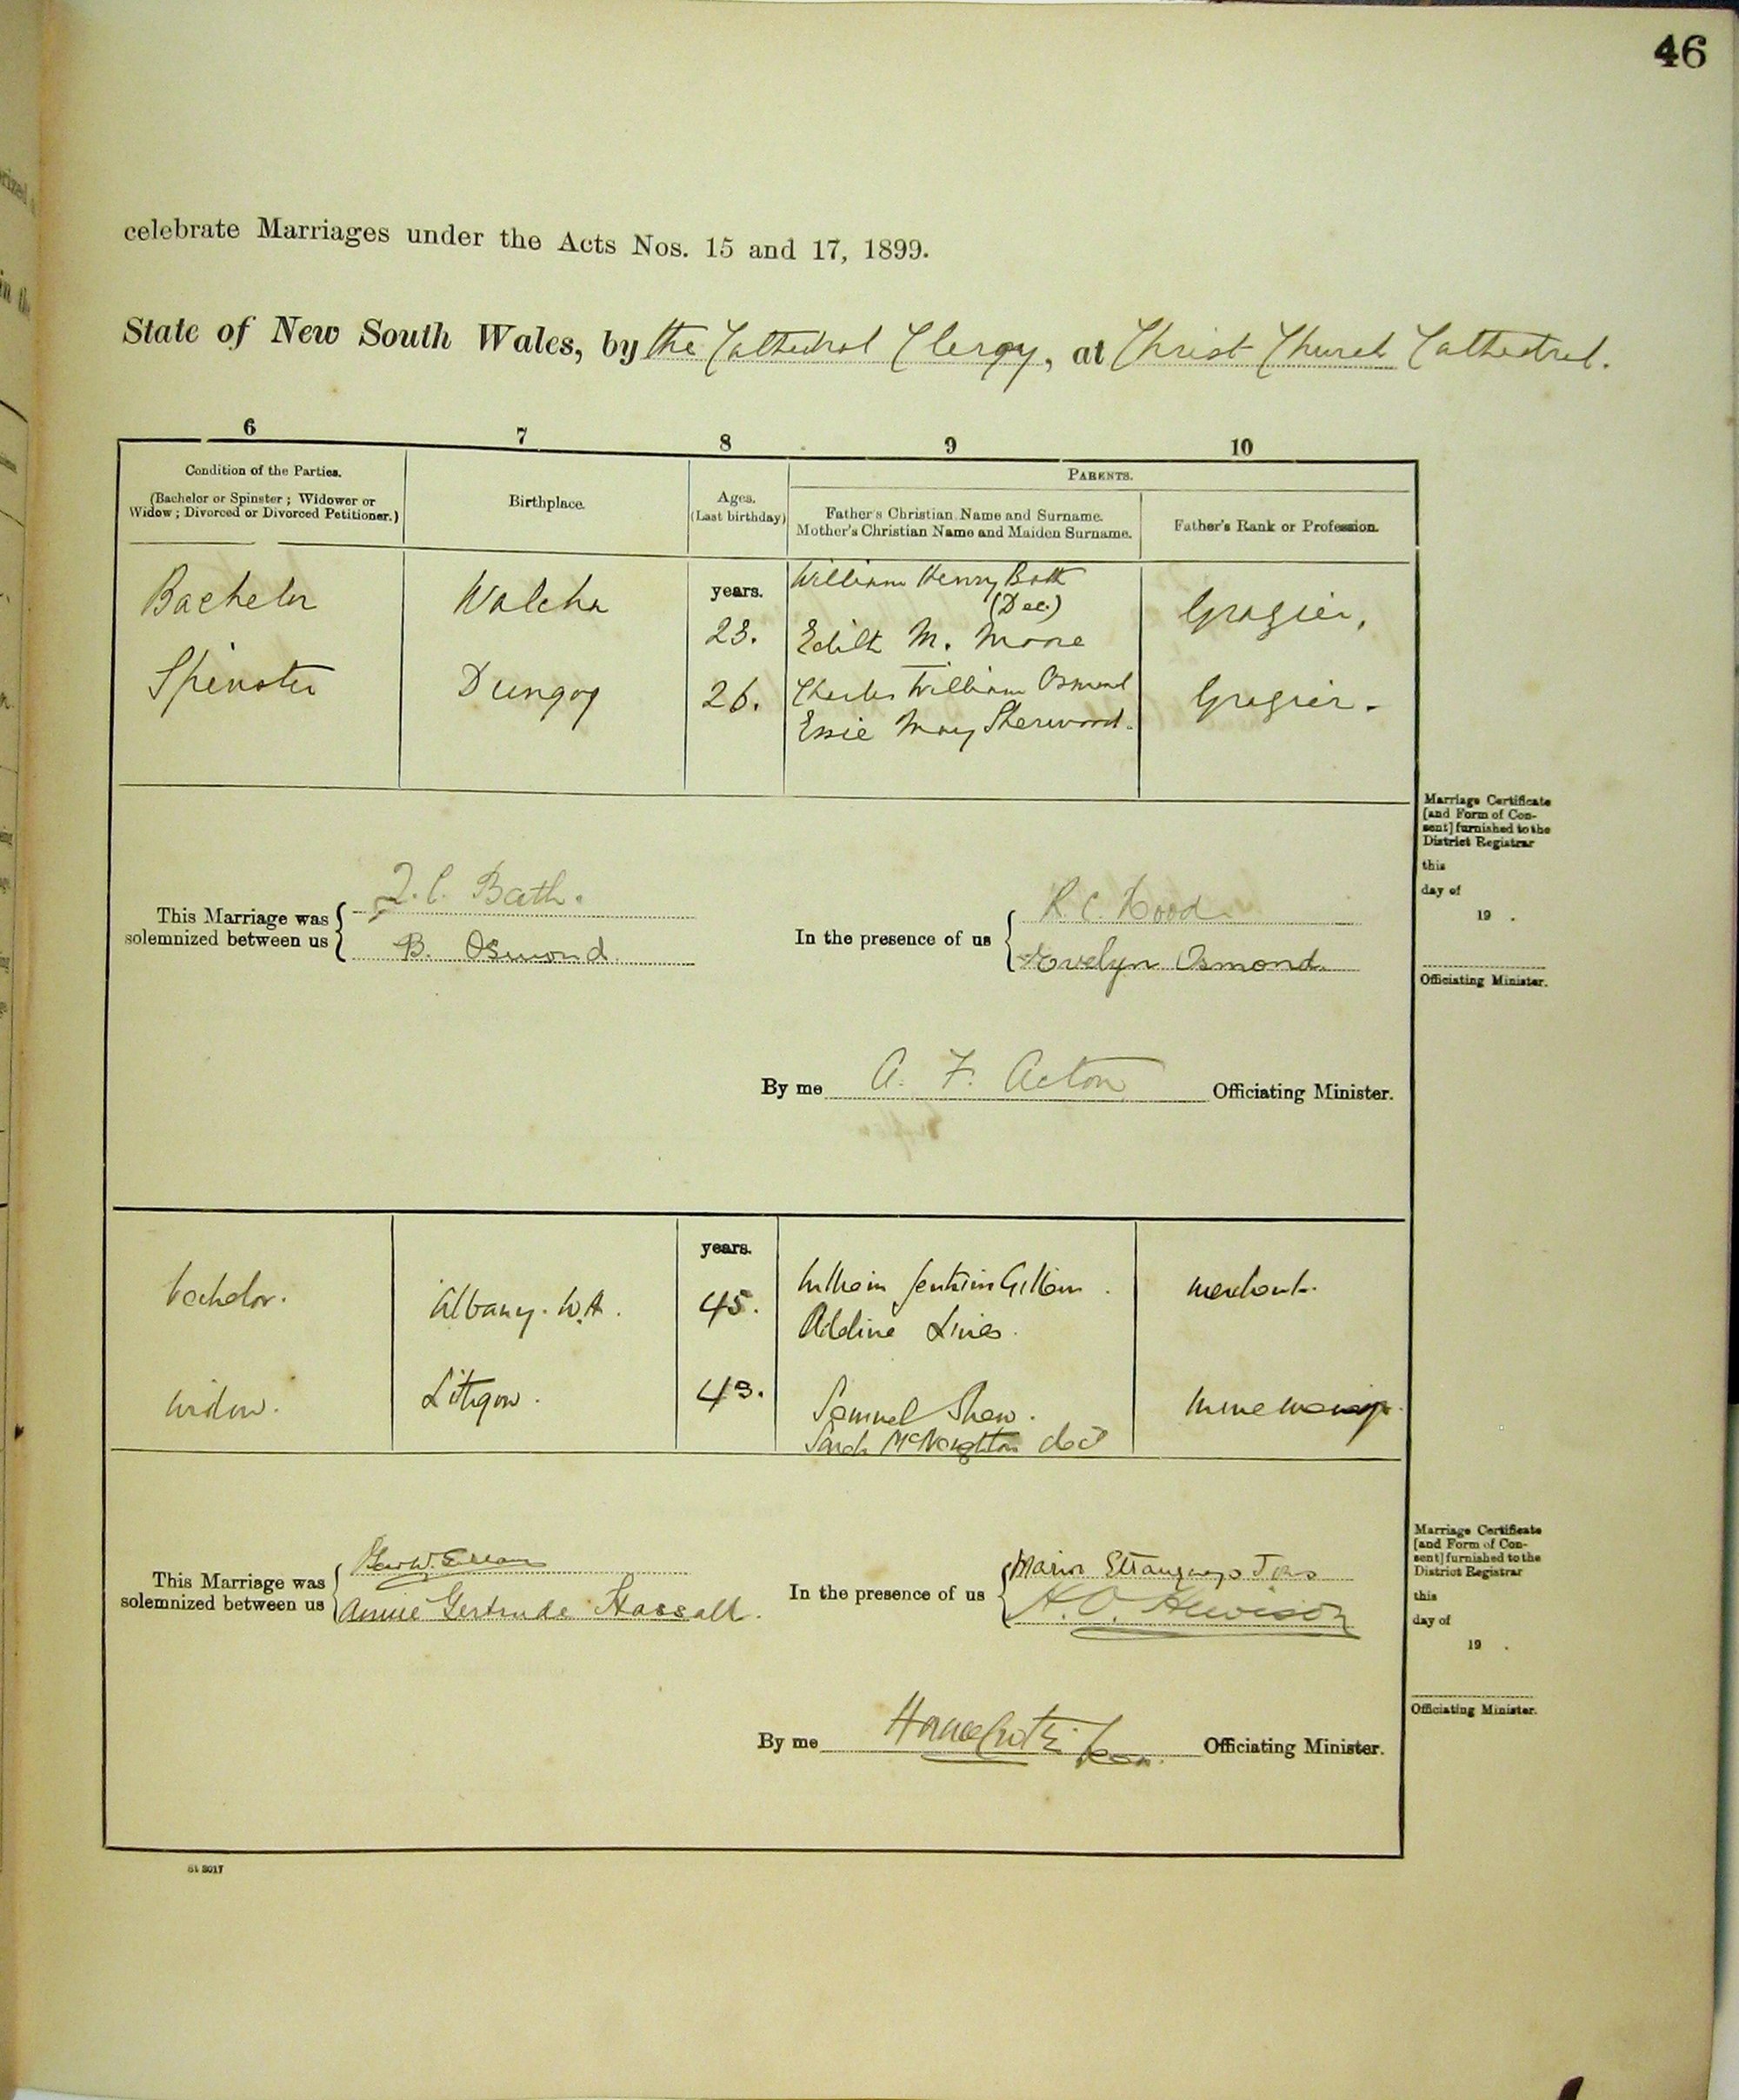 46
celebrate Marriages under the Acts Nos. 15 and 17, 1899.
State of New South Wales, by the Cathedral Clergy, at Christ Church Cathedral.
6 7 8 9 10
Condition of the Parties.
(Bachelor or Spinster; Widower or
Widow; Divorced or Divorced Petitioner.)
Birthplace.
Ages.
(Last birthday)
PARENTS.
Father's Christian Name and Surname.
Mother's Christian Name and Maiden Surname.
Father's Rank or Profession.
years.
Bachelor Walcha 23. William Henry Bath
(Dec.)
Edith M. Moore
Grazier,
Spinster Dungog 26. Charles William Osmond
Essie May Sherwood.
Grazier.
Marriage Certificate
[and Form of Con-
sent] furnished to the
District Registrar
this
day of
19 .
Officiating Minister.
This Marriage was
solemnized between us
C. Bath.
B. Osmond.
In the presence of us
R. C. Hood
Evelyn Osmond.
By me A. F. Acton Officiating Minister.
years.
bachelor. Albany. W.A. 45. William Jenkin
Adeline Lines.
merchant.
widow. Lithgow. 43. Samuel Shaw.
Sarah McNaughton decd
mine
This Marriage was
solemnized between us
Annie Gertrude Hassall.
In the presence of us
Marion
H. O. Hewison
Marriage Certificate
[and Form of Con-
sent] furnished to the
District Registrar
this
day of
19 .
Officiating Minister.
By me Officiating Minister.
St 3017